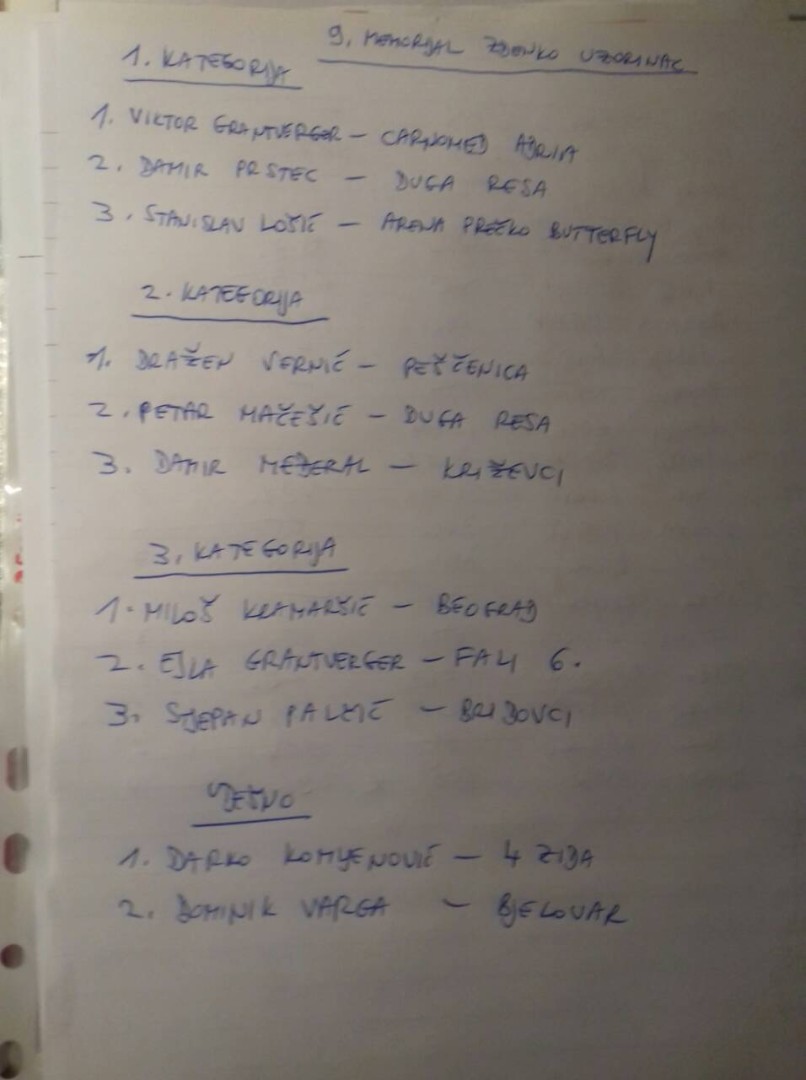 9. MEMORIJAL ZDENKO UZORINAC
1. KATEGORIJA
1. VIKTOR GRANTVERGER – CARNOMED ADRIA
2. DAMIR PRSTEC – DUGA RESA
3. STANISLAV LOŠIĆ – ARENA PREČKO BUTTERFLY
2. KATEGORIJA
1. DRAŽEN VERNIĆ – PEŠČENICA
2. PETAR MAČEŠIĆ – DUGA RESA
3. DAMIR MEĐERAL – KRIŽEVCI
3. KATEGORIJA
1. MILOŠ KRAMARŠIĆ – BEOGRAD
2. EJLA GRANTVERGER – FALI 6.
3. STJEPAN – BRDOVCI
UTEŠNO
1. DARKO KOMLJENOVIĆ – 4 ZIDA
2. DOMINIK VARGA – BJELOVAR